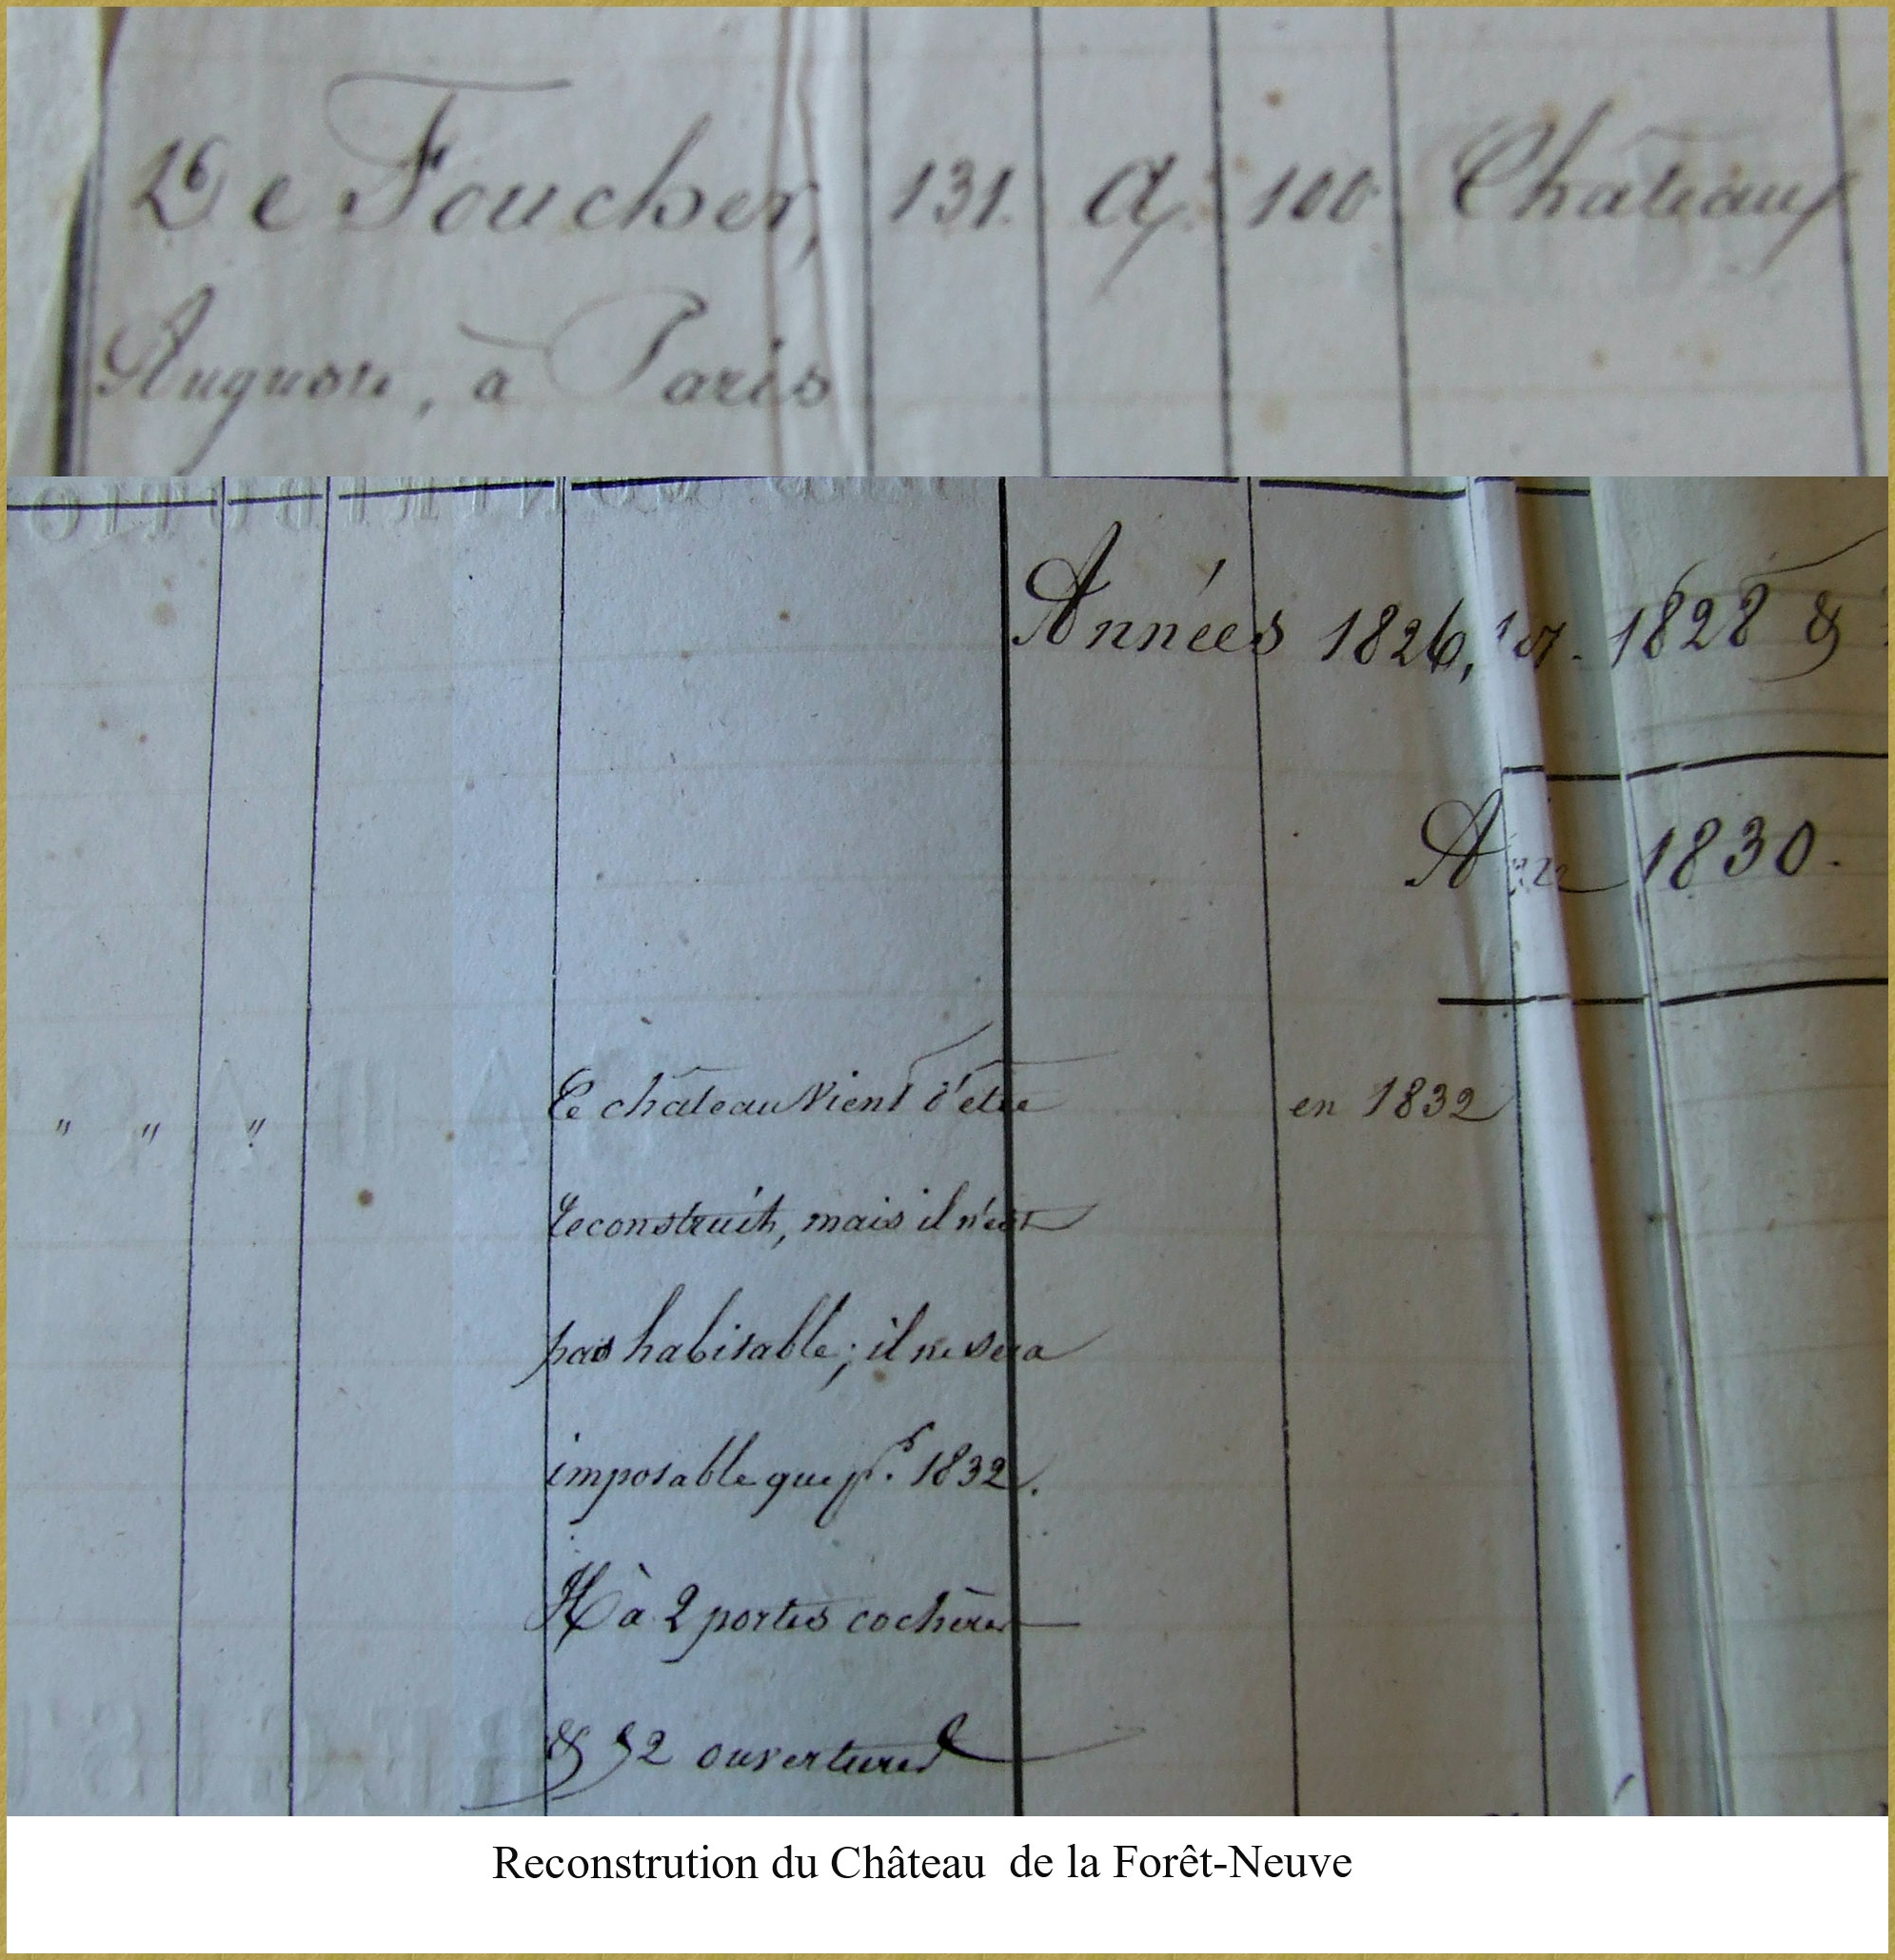 De Foucher, 131. A. 100 Chateau
Auguste, à Paris
Années 1826, 1828 &
1830.
Ce château vient d'etre en 1832
reconstruit, mais il n'est
pas habitable; il ne sera
imposable que pr. 1832.
Il à 2 portes cochères
& 52 ouvertures
Reconstrution du Château de la Forêt-Neuve